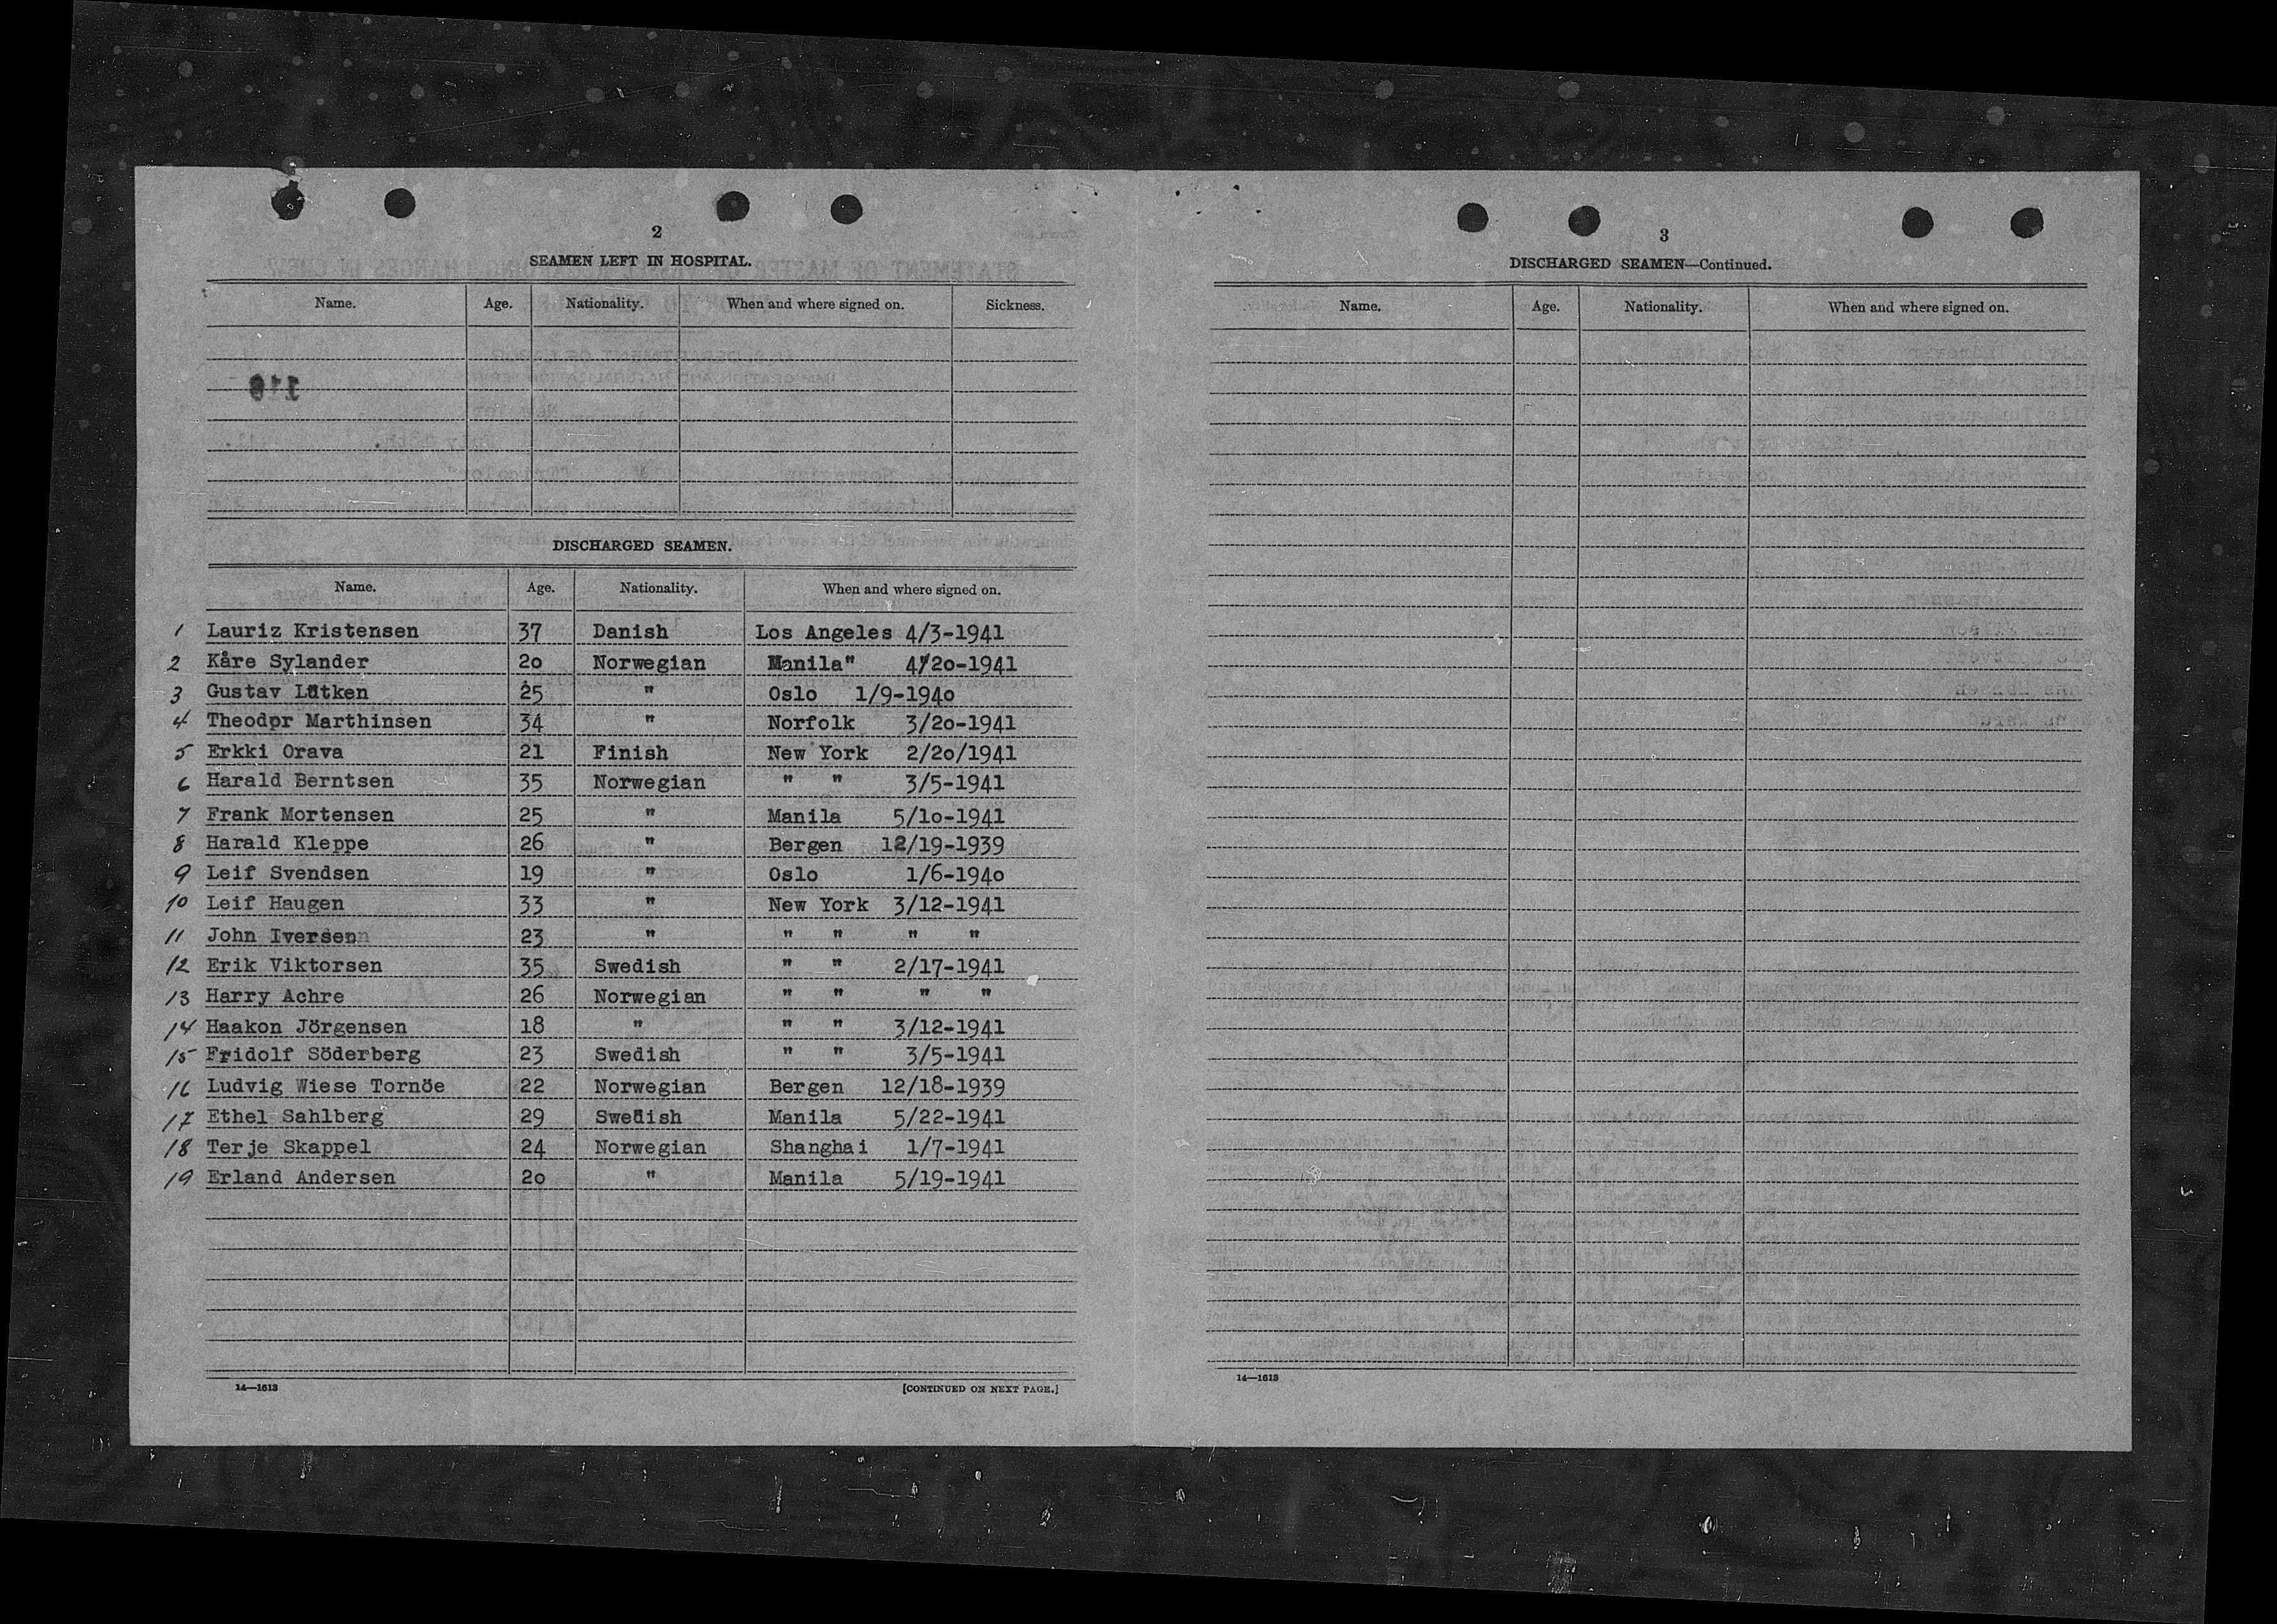 2
SEAMEN LEFT IN HOSPITAL.
Name. Age. Nationality. When and where signed on. Sickness.
DISCHARGED SEAMEN.
Name. Age. Nationality. When and where signed on.
1 Lauriz Kristensen 37 Danish Los Angeles 4/3-1941
2 Kåre Sylander 20 Norwegian Manila" 4/20-1941
3 Gustav Lütken 25 " Oslo 1/9-1940
4 Theodor Marthinsen 34 " Norfolk 3/20-1941
5 Erkki Orava 21 Finish New York 2/20/1941
6 Harald Berntsen 35 Norwegian " " 3/5-1941
7 Frank Mortensen 25 " Manila 5/10-1941
8 Harald Kleppe 26 " Bergen 12/19-1939
9 Leif Svendsen 19 " Oslo 1/6-1940
10 Leif Haugen 33 " New York 3/12-1941
11 John Iversen 23 " " " " "
12 Erik Viktorsen 35 Swedish " " 2/17-1941
13 Harry Achre 26 Norwegian " " " "
14 Haakon Jörgensen 18 " " " 3/12-1941
15 Fridolf Söderberg 23 Swedish " " 3/5-1941
16 Ludvig Wiese Tornöe 22 Norwegian Bergen 12/18-1939
17 Ethel Sahlberg 29 Swedish Manila 5/22-1941
18 Terje Skappel 24 Norwegian Shanghai 1/7-1941
19 Erland Andersen 20 " Manila 5/19-1941
14—1613 [CONTINUED ON NEXT PAGE.]
3
DISCHARGED SEAMEN—Continued.
Name. Age. Nationality. When and where signed on.
14—1613